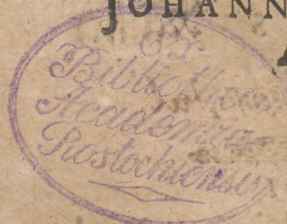 JOHANN
Ex
Bibliotheca
Academiae
Rostochiensi